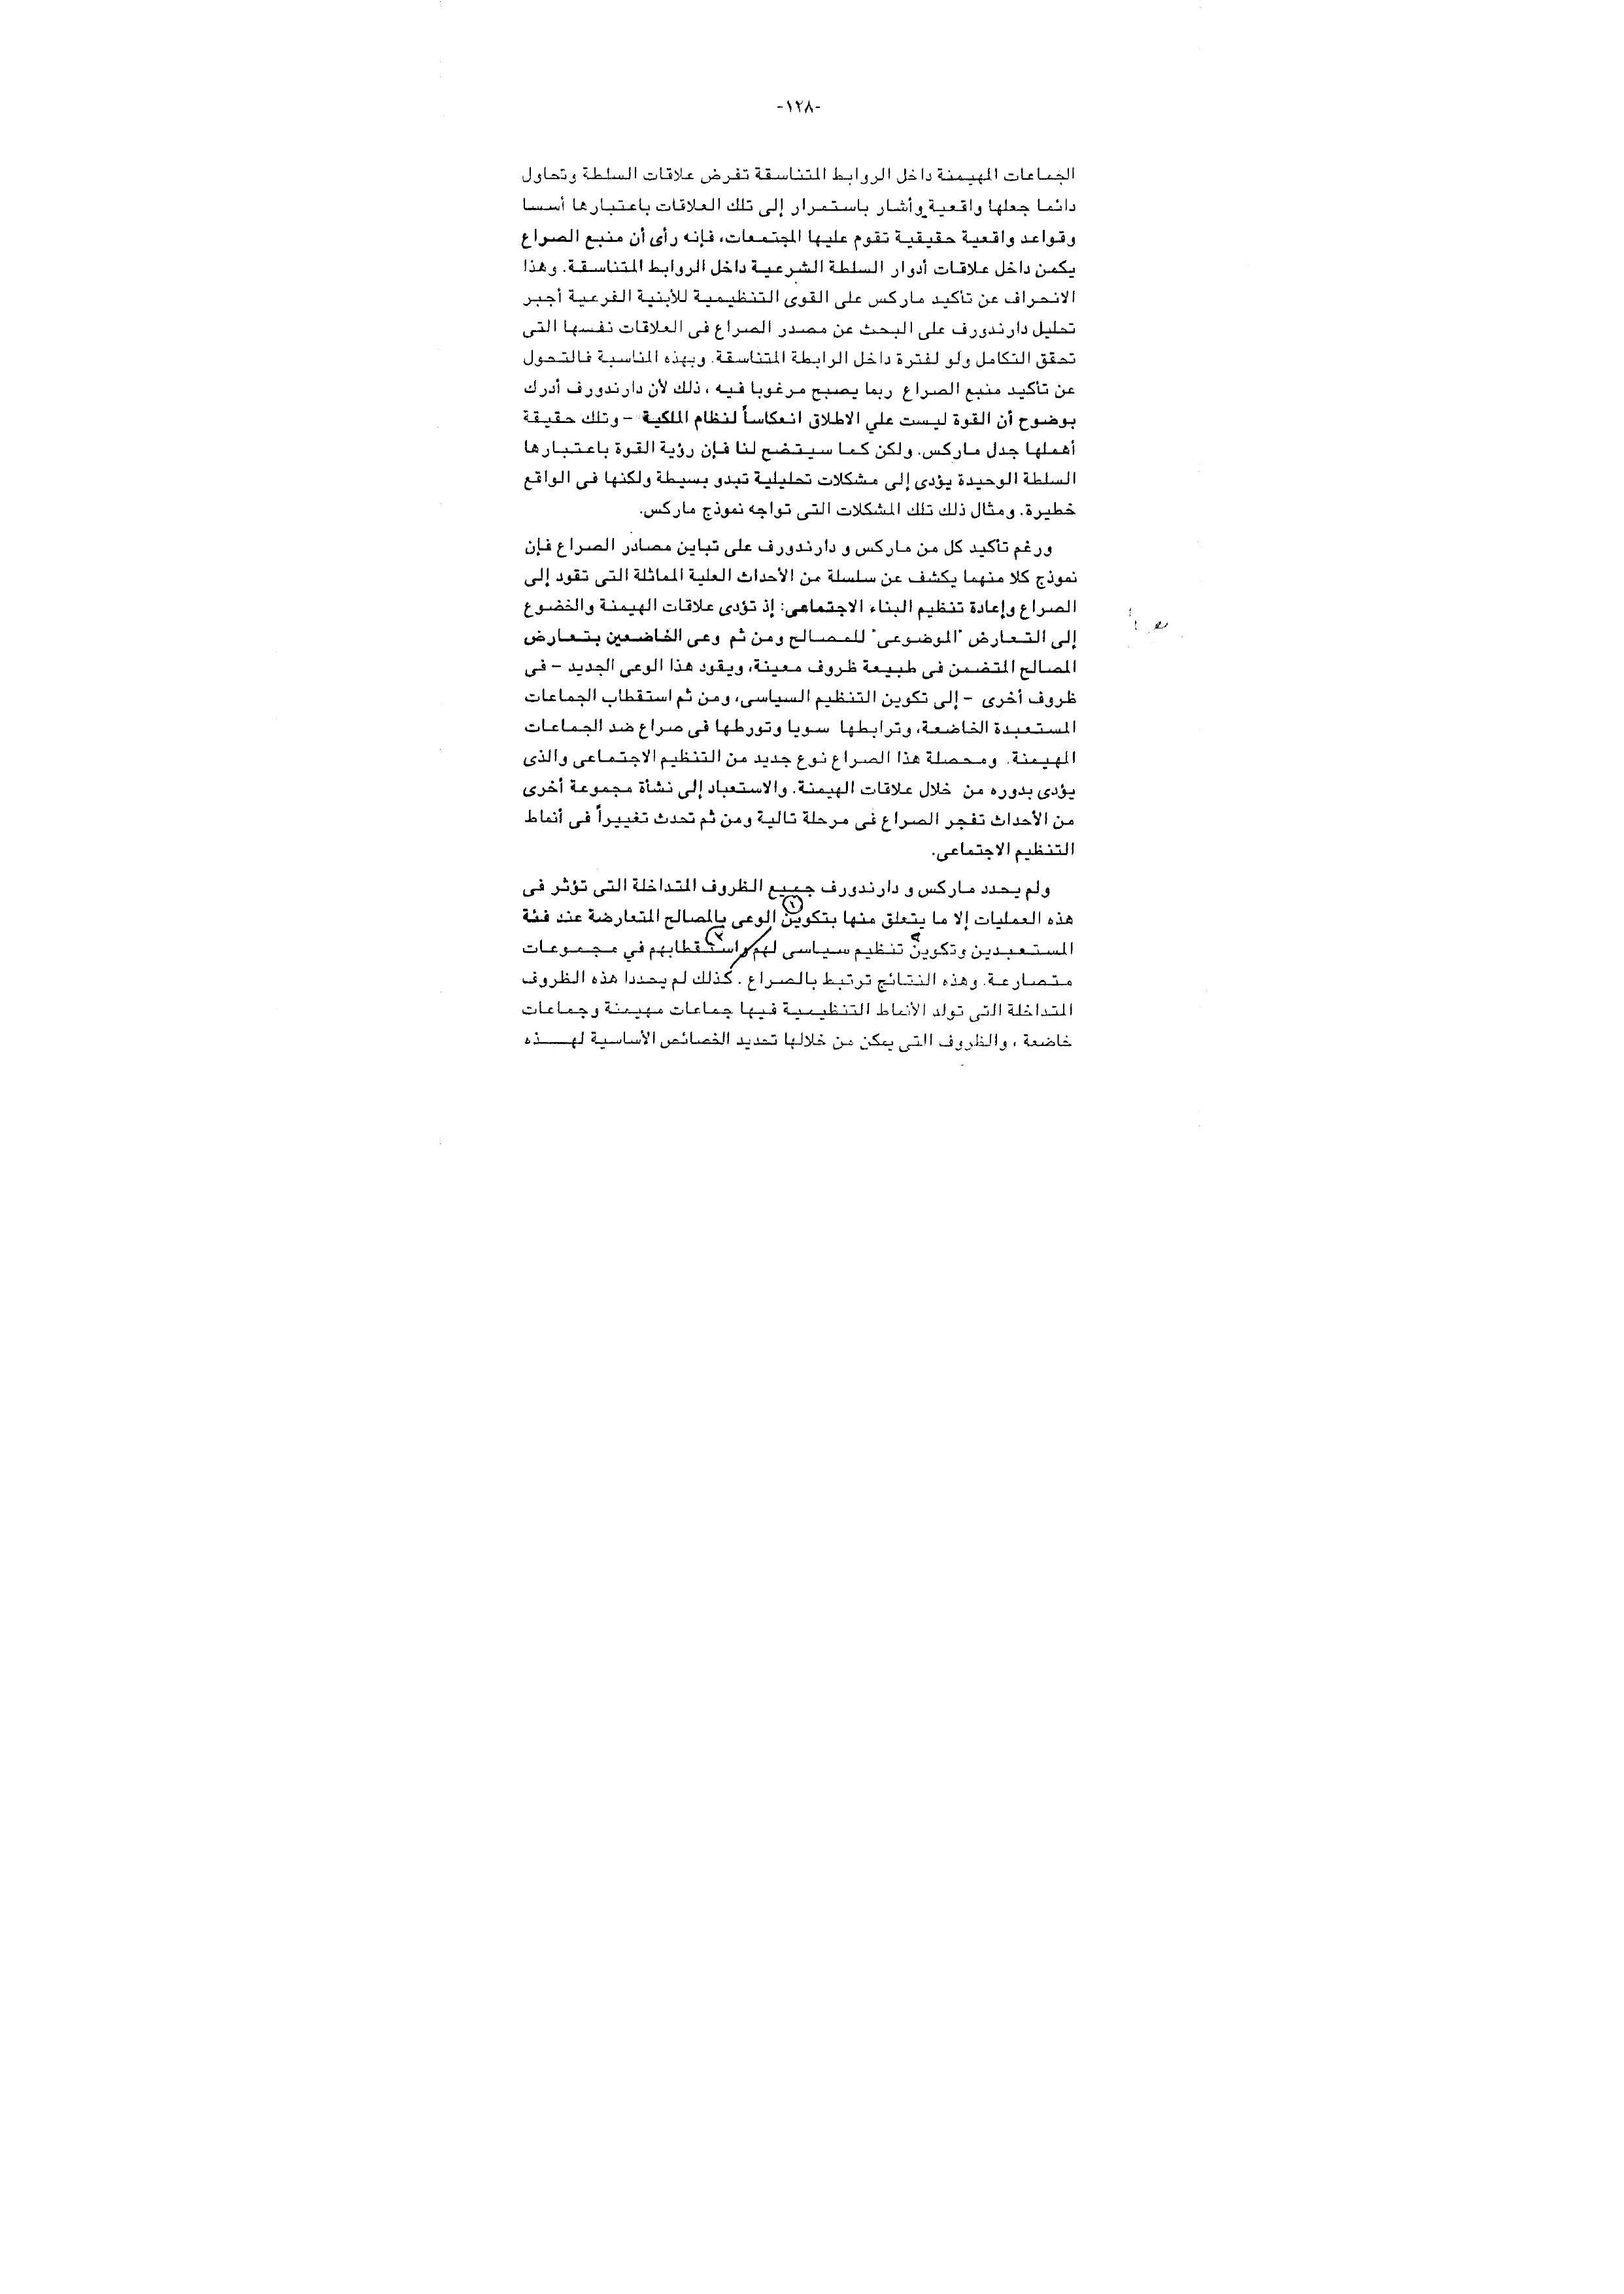 -١٢٨-
الجماعات المهيمنة داخل الروابط المتناسقة تفرض علاقات السلطة وتحاول
دائما جعلها واقعية وأشار باستمرار إلى تلك العلاقات باعتبارها أسسا
وقواعد واقعية حقيقية تقوم عليها المجتمعات، فإنه رأى أن منبع الصراع
يكمن داخل علاقات أدوار السلطة الشرعية داخل الروابط المتناسقة. وهذا
الانحراف عن تأكيد ماركس على القوى التنظيمية للأبنية الفرعية أجبر
تحليل دارندورف على البحث عن مصدر الصراع فى العلاقات نفسها التى
تحقق التكامل ولو لفترة داخل الرابطة المتناسقة. وبهذه المناسبة فالتحول
عن تأكيد منبع الصراع ربما يصبح مرغوبا فيه ، ذلك لأن دارندورف أدرك
بوضوح أن القوة ليست علي الاطلاق انعكاساً لنظام الملكية - وتلك حقيقة
أهملها جدل ماركس. ولكن كما سيتضح لنا فإن رؤية القوة باعتبارها
السلطة الوحيدة يؤدى إلى مشكلات تحليلية تبدو بسيطة ولكنها فى الواقع
خطيرة. ومثال ذلك تلك المشكلات التى تواجه نموذج ماركس.
ورغم تأكيد كل من ماركس و دارندورف على تباين مصادر الصراع فإن
نموذج كلا منهما يكشف عن سلسلة من الأحداث العلية المماثلة التى تقود إلى
الصراع وإعادة تنظيم البناء الاجتماعى: إذ تؤدى علاقات الهيمنة والخضوع
إلى التعارض "الموضوعى" للمصالح ومن ثم وعى الخاضعين بتعارض
المصالح المتضمن فى طبيعة ظروف معينة، ويقود هذا الوعى الجديد - فى
ظروف أخرى - إلى تكوين التنظيم السياسى، ومن ثم استقطاب الجماعات
المستعبدة الخاضعة، وترابطها سويا وتورطها فى صراع ضد الجماعات
المهيمنة. ومحصلة هذا الصراع نوع جديد من التنظيم الاجتماعى والذى
يؤدى بدوره من خلال علاقات الهيمنة. والاستعباد إلى نشأة مجموعة أخرى
من الأحداث تفجر الصراع فى مرحلة تالية ومن ثم تحدث تغييراً فى أنماط
التنظيم الاجتماعى.
ولم يحدد ماركس و دارندورف جميع الظروف المتداخلة التى تؤثر فى
هذه العمليات إلا ما يتعلق منها بتكوين الوعى بالمصالح المتعارضة عند فئة
المستعبدين وتكوين تنظيم سياسى لهم واستقطابهم في مجموعات
متصارعة. وهذه النتائج ترتبط بالصراع . كذلك لم يحددا هذه الظروف
المتداخلة التى تولد الأنماط التنظيمية فيها جماعات مهيمنة وجماعات
خاضعة ، والظروف التى يمكن من خلالها تحديد الخصائص الأساسية لهـــذه